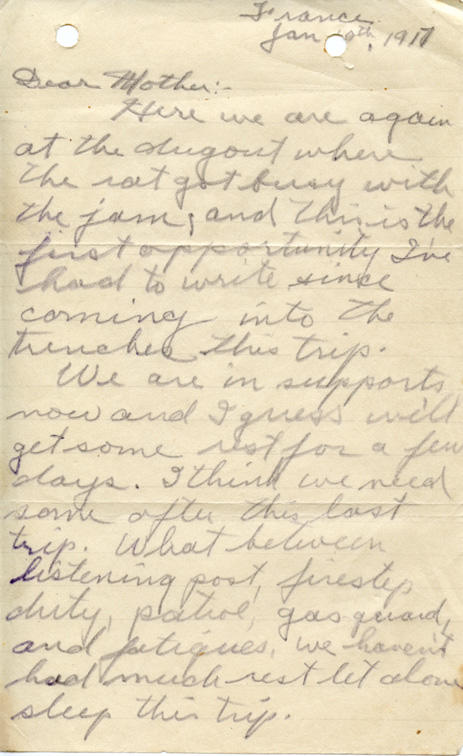 France
Jan 10th, 1917
Dear Mother:-
Here we are again
at the dugout where
the rat got busy with
the jam, and this is the
first opportunity I've
had to write since
coming into the
trenches this trip.
We are in supports
now and I guess will
get some rest for a few
days. I think we need
some after this last
trip. What between
listening post, firestep
duty, patrol, gas guard,
and fatigues, we haven't
had much rest let alone
sleep this trip.